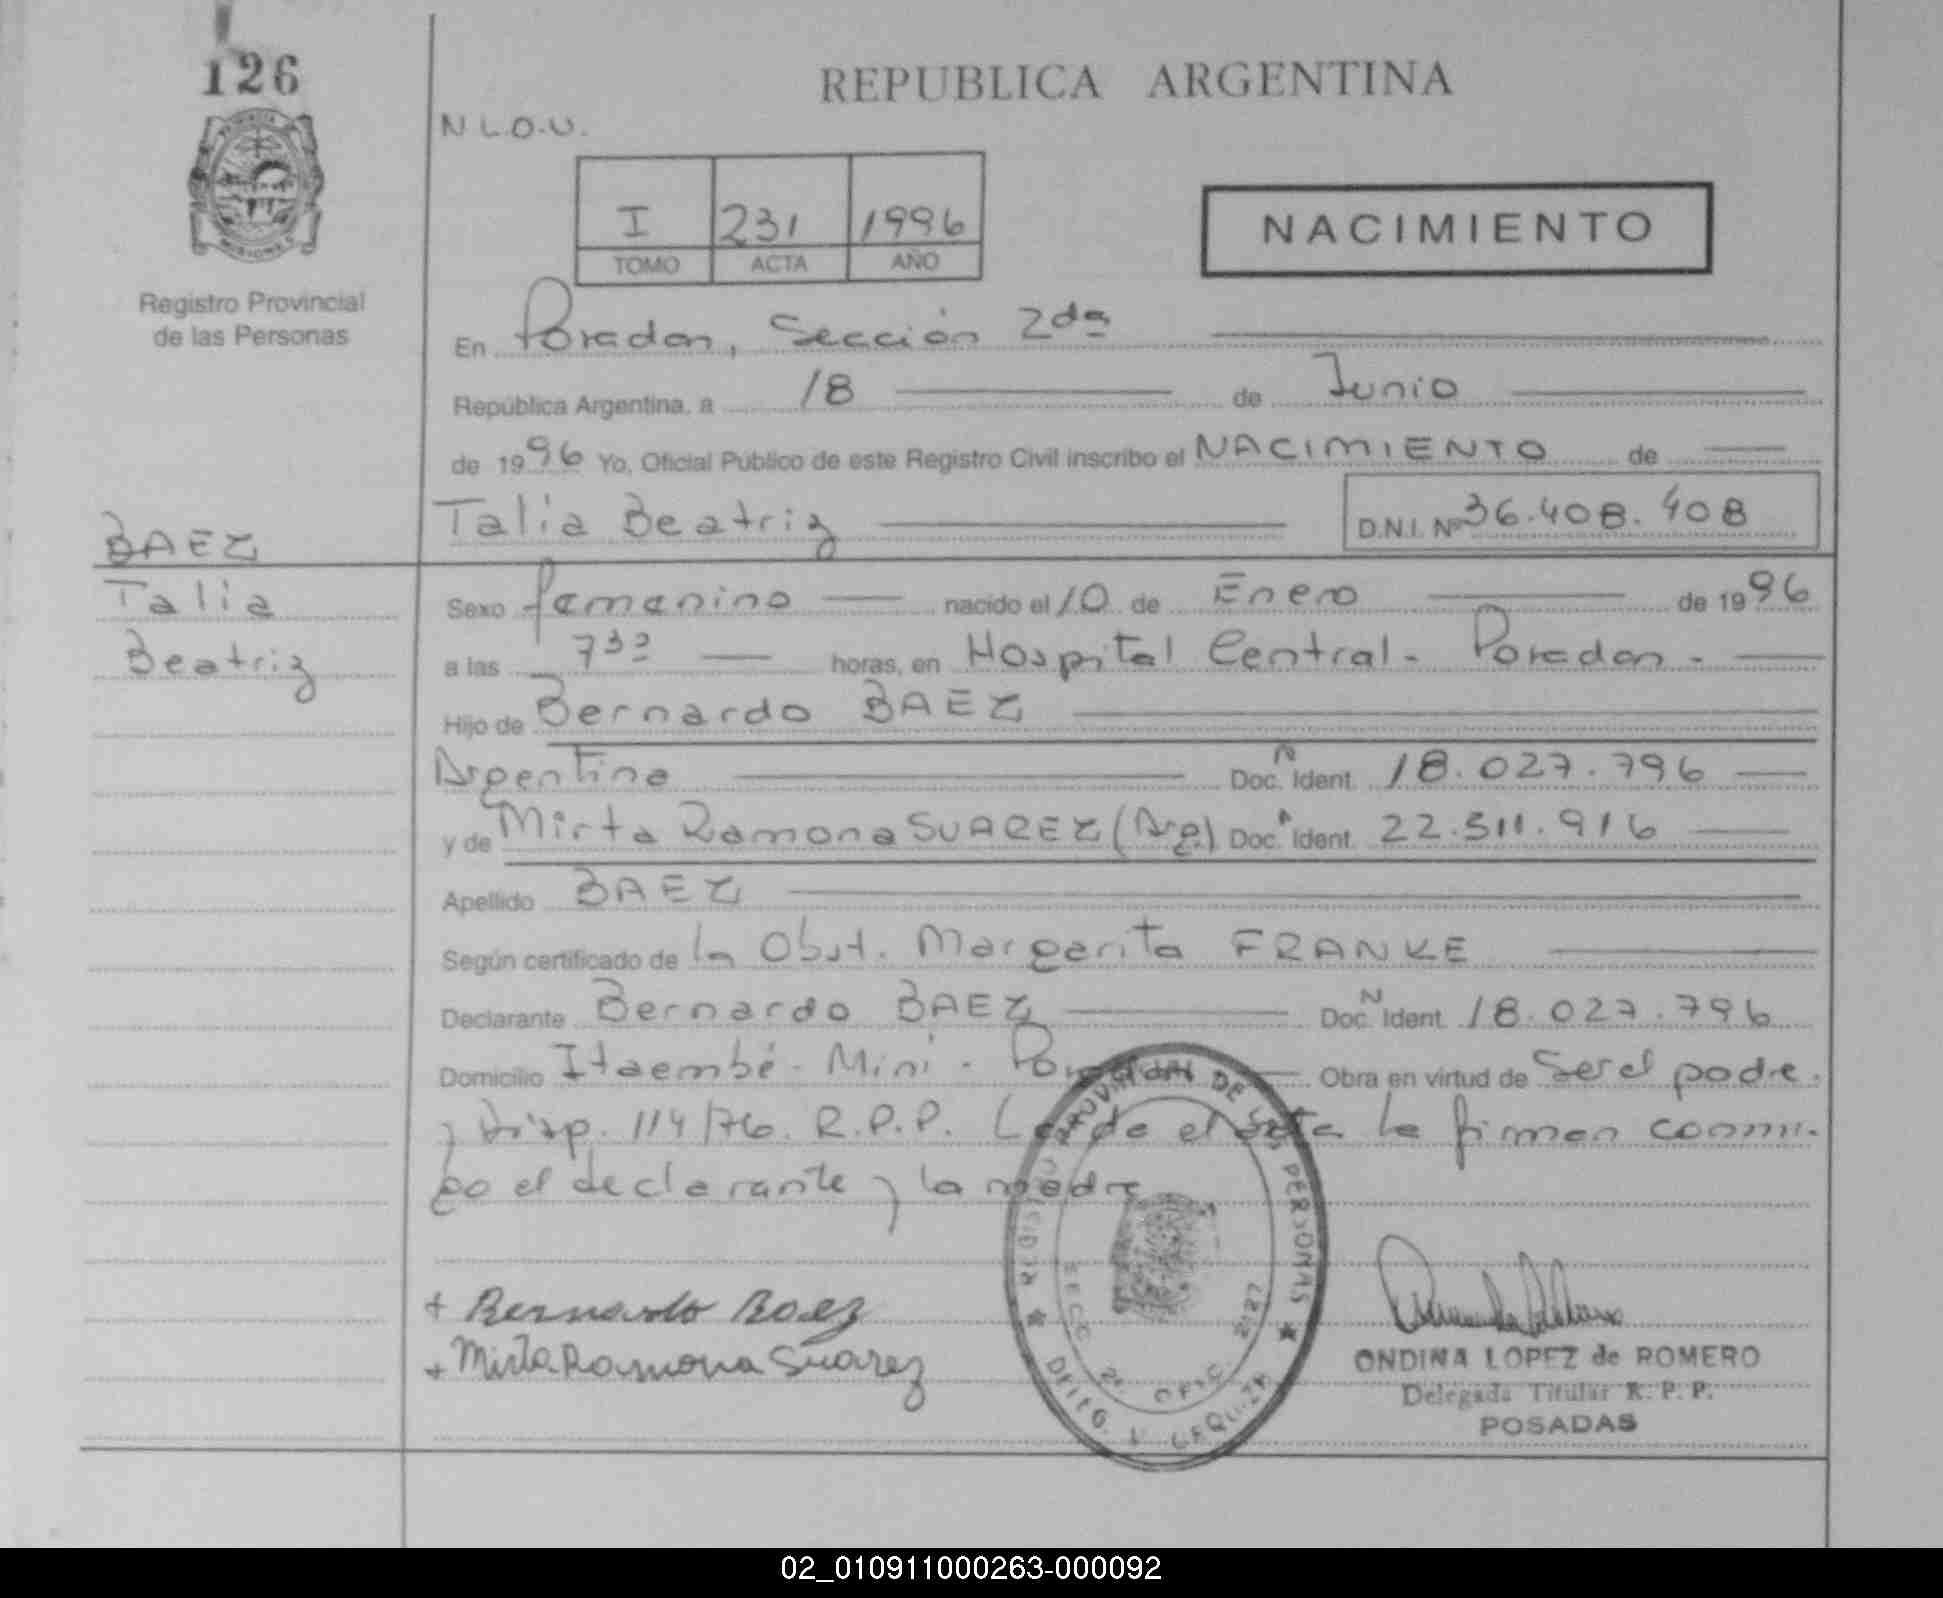 126
REPUBLICA ARGENTINA
N L.O.U.
I 231 1996
TOMO ACTA AÑO
NACIMIENTO
Registro Provincial
de las Personas
En Posadas, Sección 2da
República Argentina, a 18 de Junio
de 1996 Yo, Oficial Público de este Registro Civil inscribo el NACIMIENTO de
Talia Beatriz D.N.I. Nº 36.408.408
BAEZ
Talia
Beatriz
Sexo femenino nacido el 10 de Enero de 1996
a las 730 horas, en Hospital Central - Posadas -
Hijo de Bernardo BAEZ
Argentino Doc. N Ident. 18.027.796
y de Mirta Ramona SUAREZ (Arg). Doc. Ident. 22.511.916
Apellido BAEZ
Según certificado de la Obst. Margarita FRANKE
Declarante Bernardo BAEZ Doc. N Ident. 18.027.796
Domicilio Itaembé - Mini - Obra en virtud de Ser el padre.
y Disp. 114/76. R.P.P. Leida el acta la firman conmi-
go el declarante y la madre
+ Bernardo Baez
+ Mirta Ramona Suarez
REGISTRO PROVINCIAL DE LAS PERSONAS
SECC 2ª OFIC. 2127
ONDINA LOPEZ de ROMERO
Delegada Titular R. P. P.
POSADAS
02_010911000263-000092